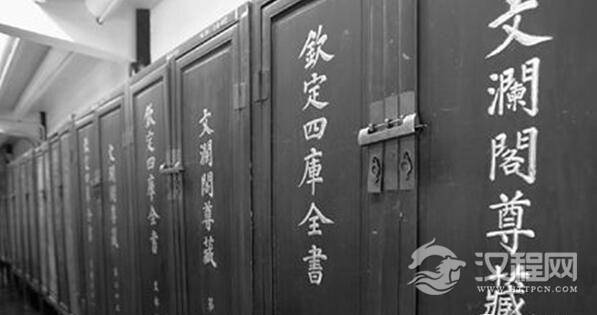 文瀾閣尊藏
欽定四庫全書
文瀾閣尊藏 第
欽定四庫全書
文瀾閣尊藏
欽定四庫全書
汉程网
HTTPCN.COM